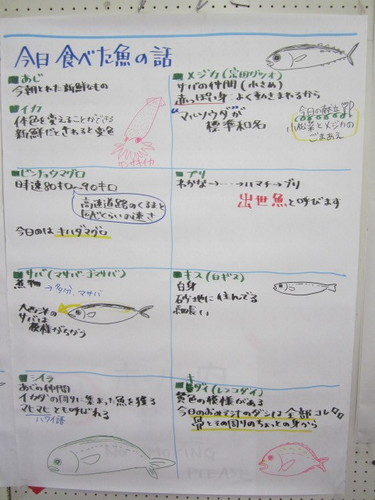 今日食べた魚の話
■あじ
今朝とれた新鮮なもの
■イカ
体色を変えることができる
新鮮だとさわると変色
ケンサキイカ
■メジカ(宗田ガツオ)
サバの仲間(小さめ)
赤っぽい身 よく動きまわるから
"マルソウダ"が
標準和名
今日の献立
小松菜とメジカの
ごまあえ
■ビンチョウマグロ
時速80キロ〜90キロ
高速道路のくるまと
同じくらいの速さ
今日のは キハダマグロ
■ブリ
ハマチ→ブリ
出世魚と呼びます
■サバ(マサバ・ゴマサバ)
煮物
マサバ
サバは
模様がちがう
■キス(シロギス)
白身
砂地に住んでる
細長い
■シイラ
あじの仲間
イカダの回りに集まった魚を獲る
マヒマヒとも呼ばれる
ハワイ語
ダイ(レンコダイ)
黄色の模様がある
今日のおすましのダシは全部コレダケ
骨とその回りのちょっとの身から